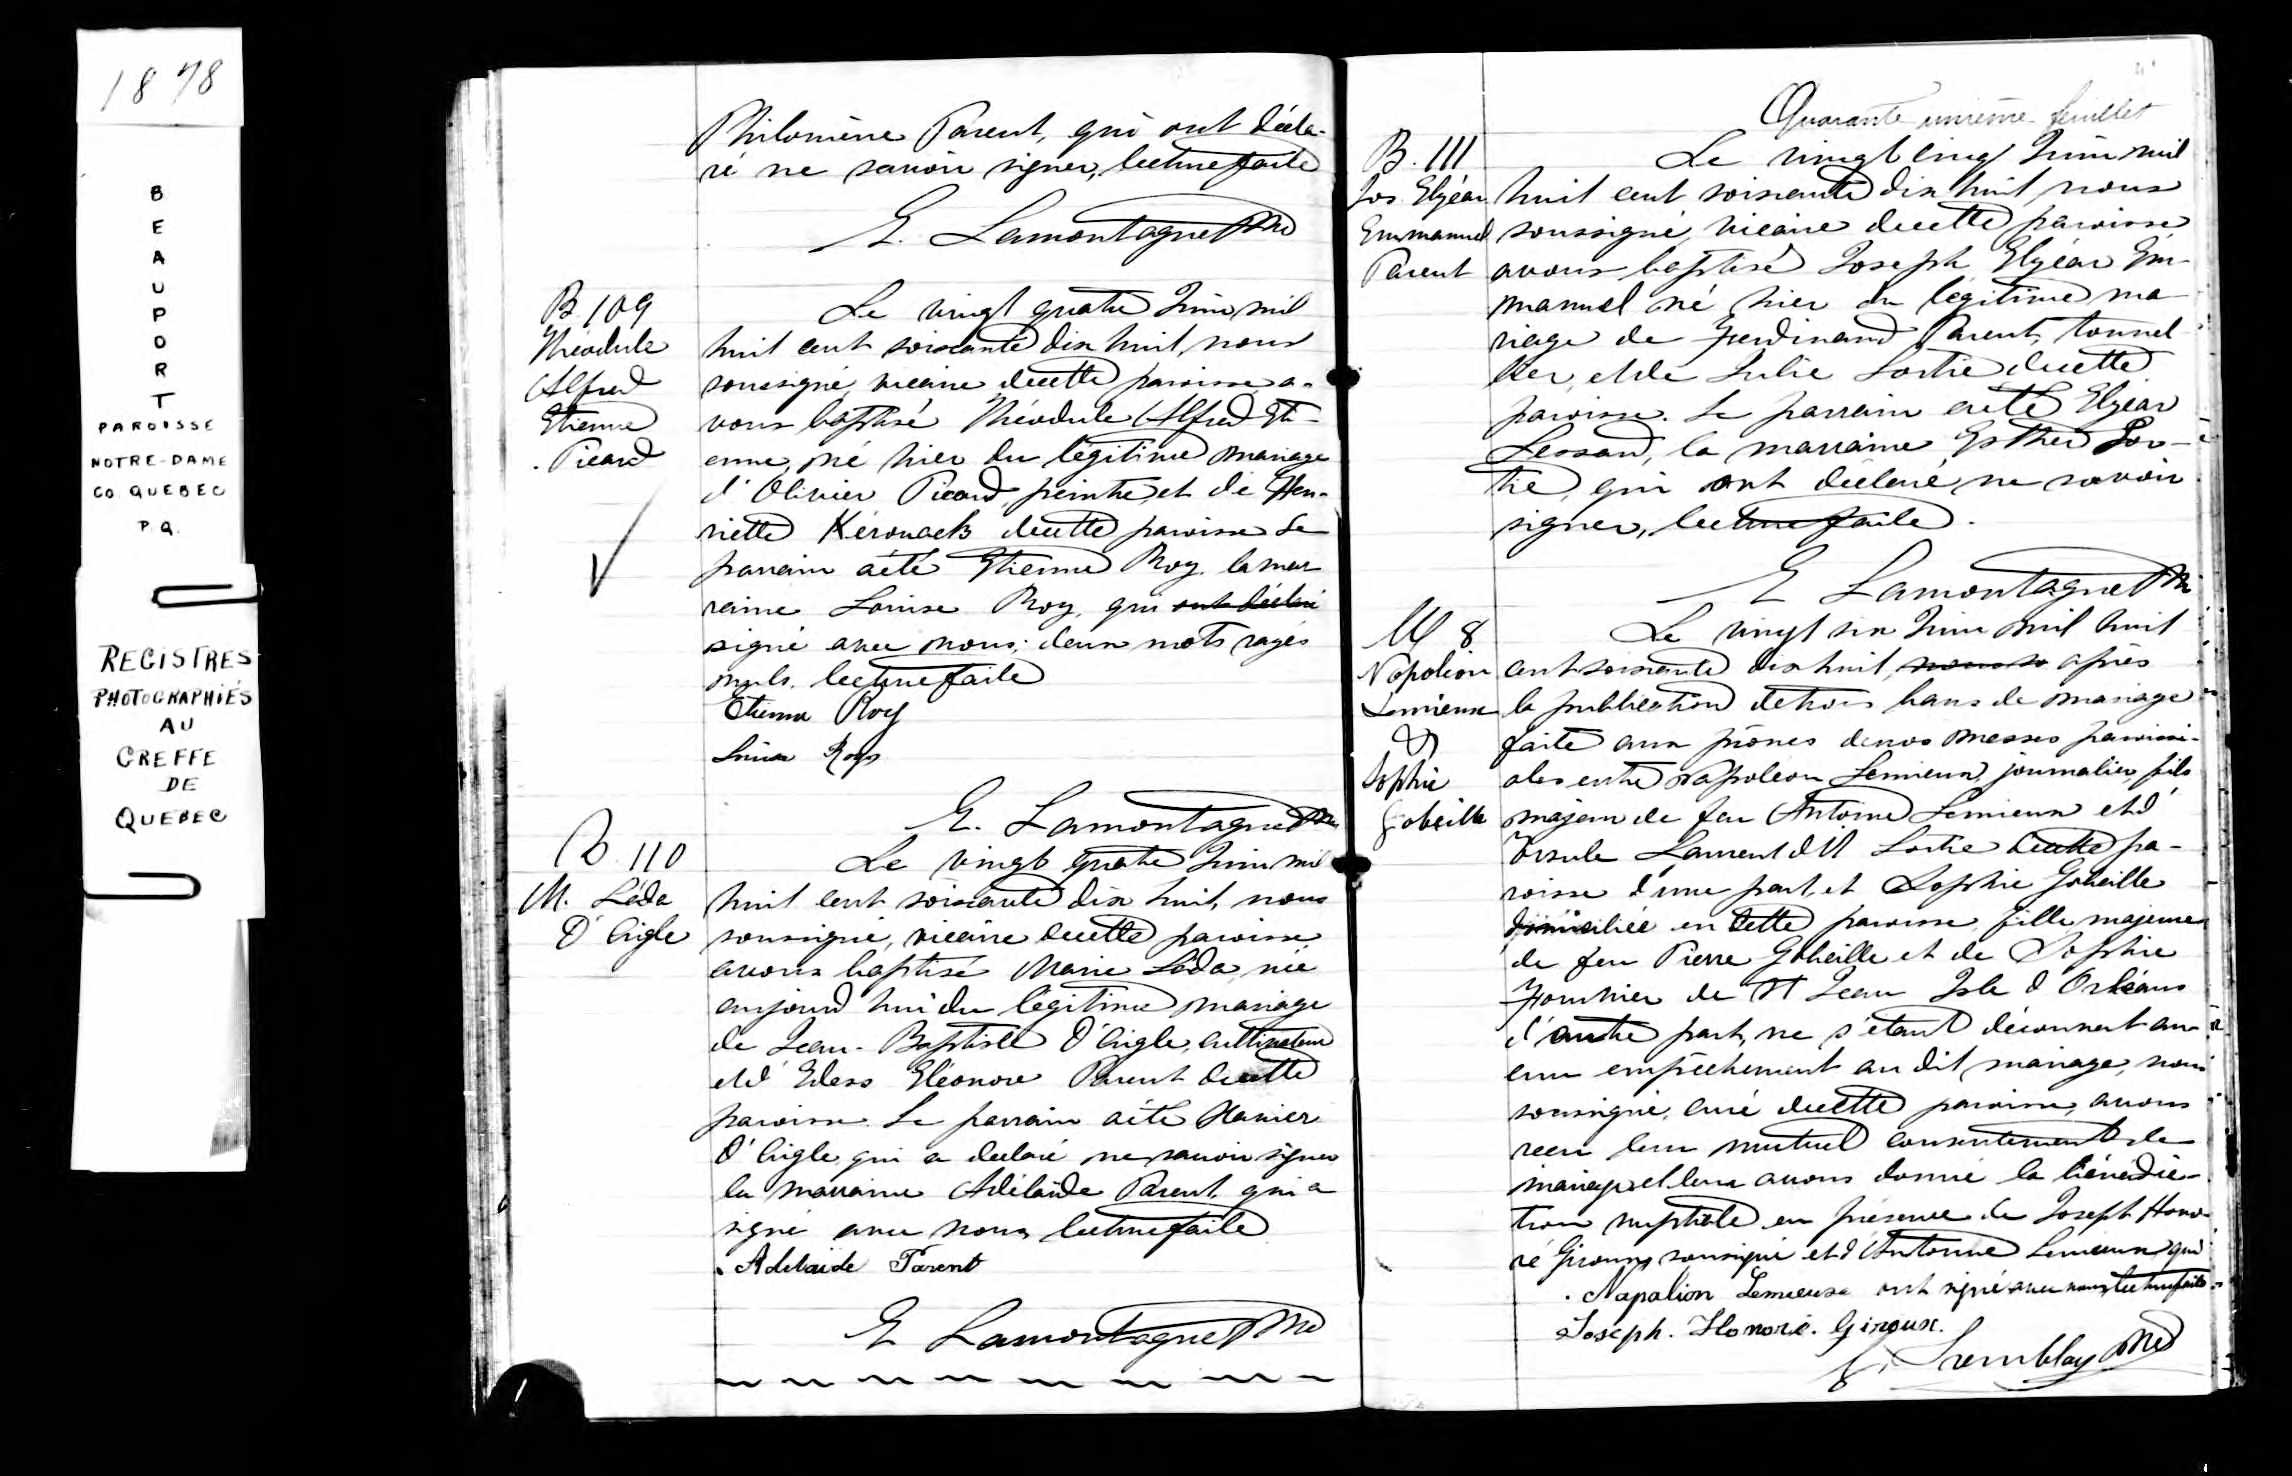 1878
B
E
A
U
P
O
R
T
PAROISSE
NOTRE-DAME
CO QUEBEC
P.Q.
REGISTRES
PHOTOGRAPHIÉS
AU
GREFFE
DE
QUEBEC
Philomène Parent, qui ont décla-
ré ne savoir signer, lecture faite
E. Lamontagne Ptre
B. 109
Théodule
Alfred
Etienne
Picard
Le vingt quatre Juin mil
huit cent soixante dix huit, nous
soussigné, vicaire de cette paroisse a-
vons baptisé Théodule Alfred Eti-
enne, né hier du légitime mariage
d'Olivier Picard, peintre, et de Hen-
riette Kérouack de cette paroisse Le
parrain a été Etienne Roy la mar
raine Louise Roy, qui ont déclaré
signé avec nous; deux mots rayés
nuls. lecture faite
Etienne Roy
Louise Roy
E. Lamontagne Ptre
B. 110
M. Léda
D'Aigle
Le vingt quatre Juin mil
huit cent soixante dix huit, nous
soussigné, vicaire de cette paroisse
avons baptisé Marie Léda, née
aujourd'hui du légitime mariage
de Jean-Baptiste D'Aigle, cultivateur
et d' Eléonore Parent de cette
paroisse. Le parrain a été Xavier
D'Aigle qui a déclaré ne savoir signer
la marraine Adélaïde Parent qui a
signé avec nous lecture faite
Adelaide Parent
E Lamontagne Ptre
Quarante unième feuillet
B. 111
Jos. Elzéar
Emmanuel
Parent
Le vingt cinq Juin mil
huit cent soixante dix huit nous
soussigné, vicaire de cette paroisse
avons baptisé Joseph Elzéar Em-
manuel né hier du légitime ma-
riage de Ferdinand Parent, tonnel
lier, et de Julie Lortie de cette
paroisse. Le parrain a été Elzéar
Lessard, la marraine Esther Lor-
tie, qui ont déclaré ne savoir
signer, lecture faite.
E Lamontagne Ptre
M 8
Napoléon
Lemieux
&
Sophie
Gobeille
Le vingt six Juin mil huit
cent soixante dix huit, nous so après
la publication de trois bans de mariage
faite aux prônes de nos messes paroissi-
ales entre Napoléon Lemieux, journalier, fils
majeur de feu Antoine Lemieux et d'
Ursule Laurent dit Lortie de cette pa-
roisse d'une part, et Sophie Gobeille
domiciliée en cette paroisse, fille majeure
de feu Pierre Gobeille et de Sophie
Fournier de St Jean Isle d'Orléans
d'autre part, ne s'étant découvert au-
cun empêchement au dit mariage, nous
soussigné, curé de cette paroisse, avons
reçu leur mutuel consentement de
mariage et leur avons donné la bénédic-
tion nuptiale en présence de Joseph Hono-
ré Giroux soussigné et d'Antoine Lemieux qui
Napolion Lemieux ont signé avec nous, lecture faite
Joseph. Honoré. Giroux.
Tremblay Ptre